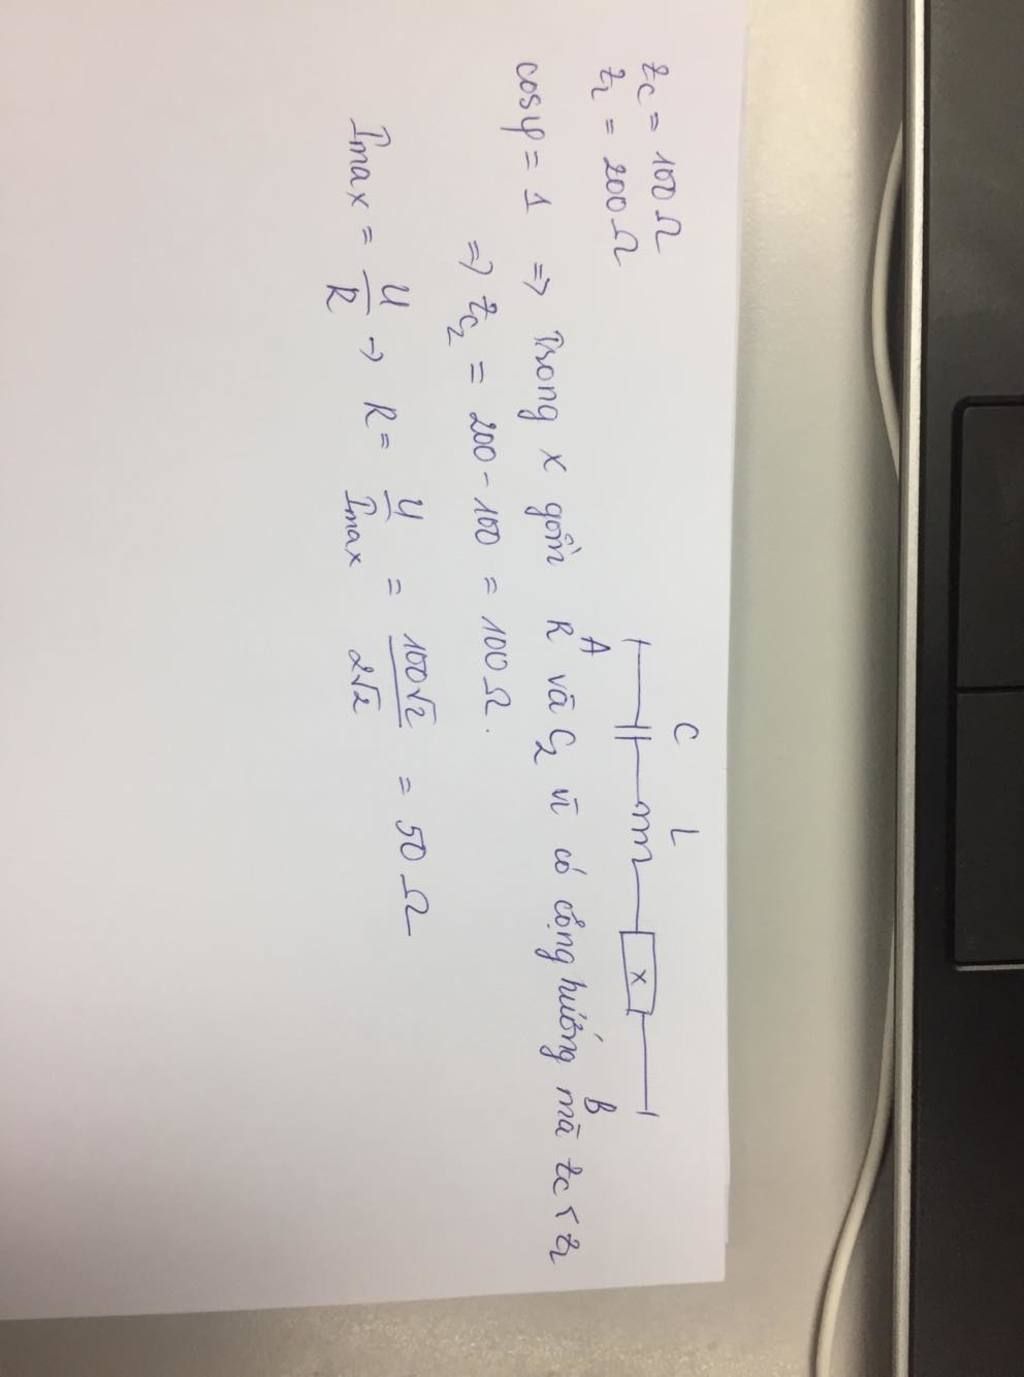 Zc = 100Ω
ZL = 200Ω
C L
A X B
cosφ = 1 => Trong X gồm R và C2 vì có cộng hưởng mà Zc < ZL
=> Zc2 = 200 - 100 = 100Ω.
Imax = U/R → R = U/Imax = 100√2/2√2 = 50Ω